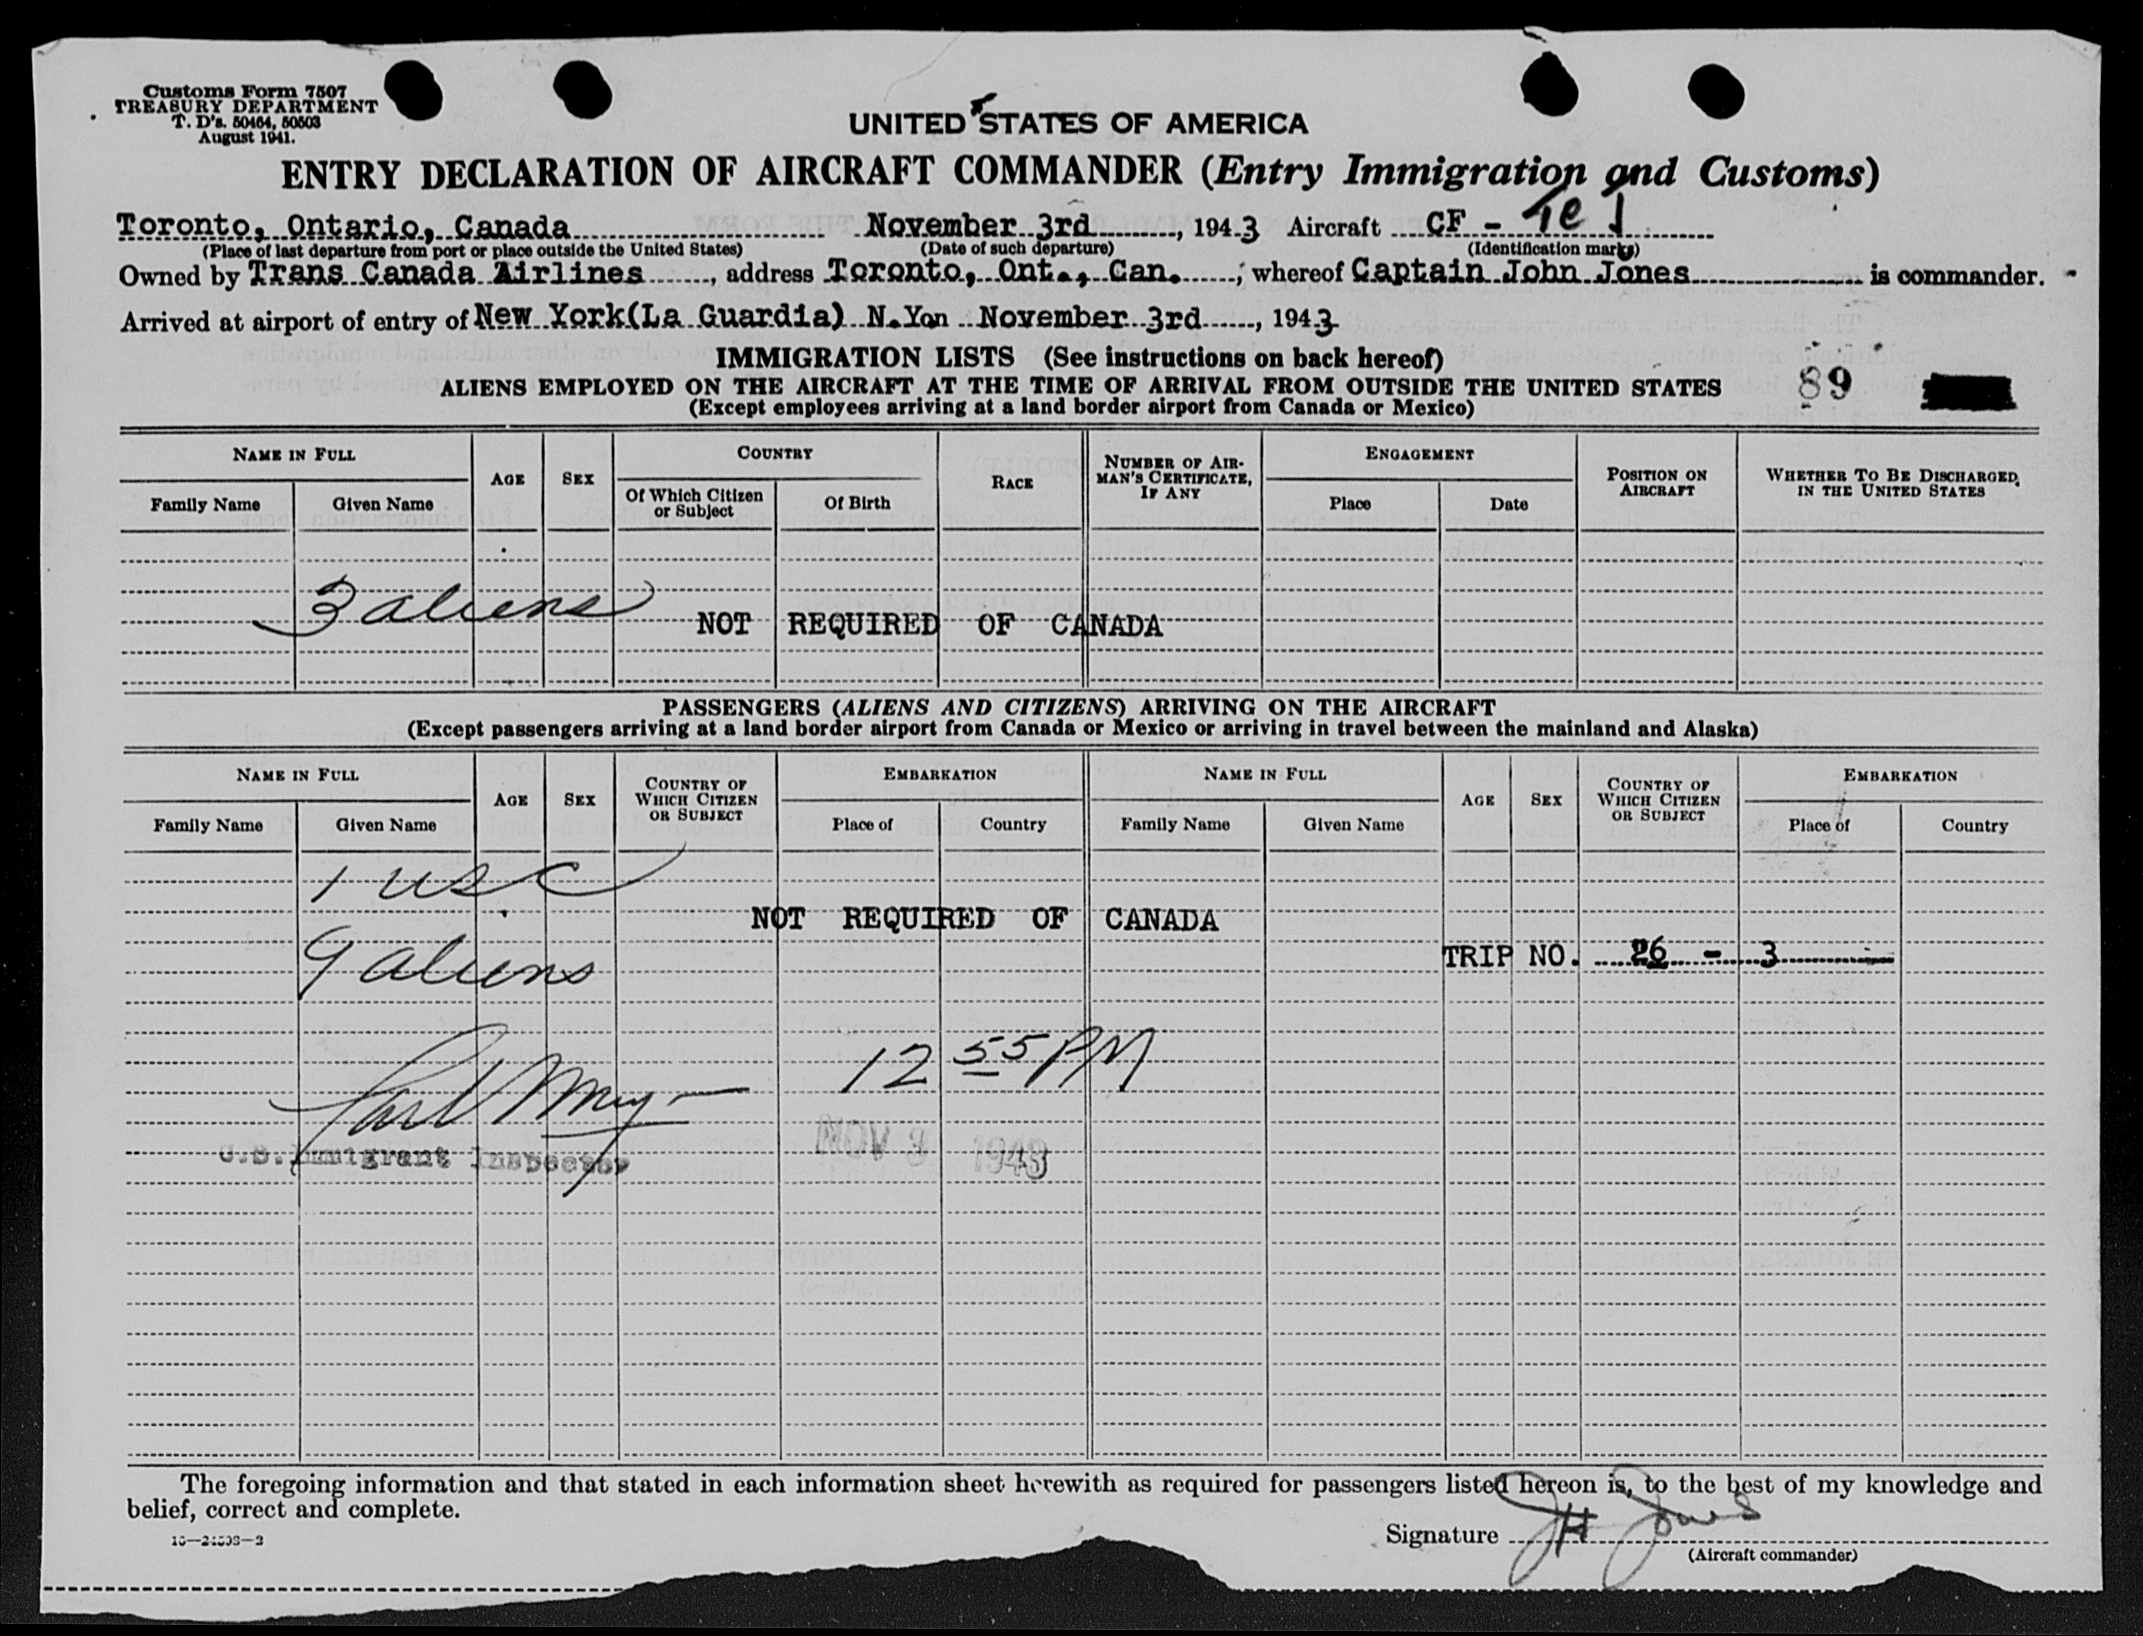 Customs Form 7507
TREASURY DEPARTMENT
T. D's. 50464, 50503
August 1941.
UNITED STATES OF AMERICA
ENTRY DECLARATION OF AIRCRAFT COMMANDER (Entry Immigration and Customs)
Toronto, Ontario, Canada November 3rd, 1943 Aircraft CF - TCJ
(Place of last departure from port or place outside the United States) (Date of such departure) (Identification marks)
Owned by Trans Canada Airlines, address Toronto, Ont., Can.; whereof Captain John Jones is commander.
Arrived at airport of entry of New York(La Guardia) N.Y. on November 3rd, 1943
IMMIGRATION LISTS (See instructions on back hereof)
ALIENS EMPLOYED ON THE AIRCRAFT AT THE TIME OF ARRIVAL FROM OUTSIDE THE UNITED STATES 89
(Except employees arriving at a land border airport from Canada or Mexico)
NAME IN FULL AGE SEX COUNTRY RACE NUMBER OF AIRMAN'S CERTIFICATE, IF ANY ENGAGEMENT POSITION ON AIRCRAFT WHETHER TO BE DISCHARGED IN THE UNITED STATES
Family Name Given Name Of Which Citizen or Subject Of Birth Place Date
3 aliens
NOT REQUIRED OF CANADA
PASSENGERS (ALIENS AND CITIZENS) ARRIVING ON THE AIRCRAFT
(Except passengers arriving at a land border airport from Canada or Mexico or arriving in travel between the mainland and Alaska)
NAME IN FULL AGE SEX COUNTRY OF WHICH CITIZEN OR SUBJECT EMBARKATION NAME IN FULL AGE SEX COUNTRY OF WHICH CITIZEN OR SUBJECT EMBARKATION
Family Name Given Name Place of Country Family Name Given Name Place of Country
1 USC
NOT REQUIRED OF CANADA
9 aliens
TRIP NO. 26 - 3
12 55 PM
U.S. Immigrant Inspector
NOV 3 1943
The foregoing information and that stated in each information sheet herewith as required for passengers listed hereon is, to the best of my knowledge and
belief, correct and complete.
Signature JH Jones
(Aircraft commander)